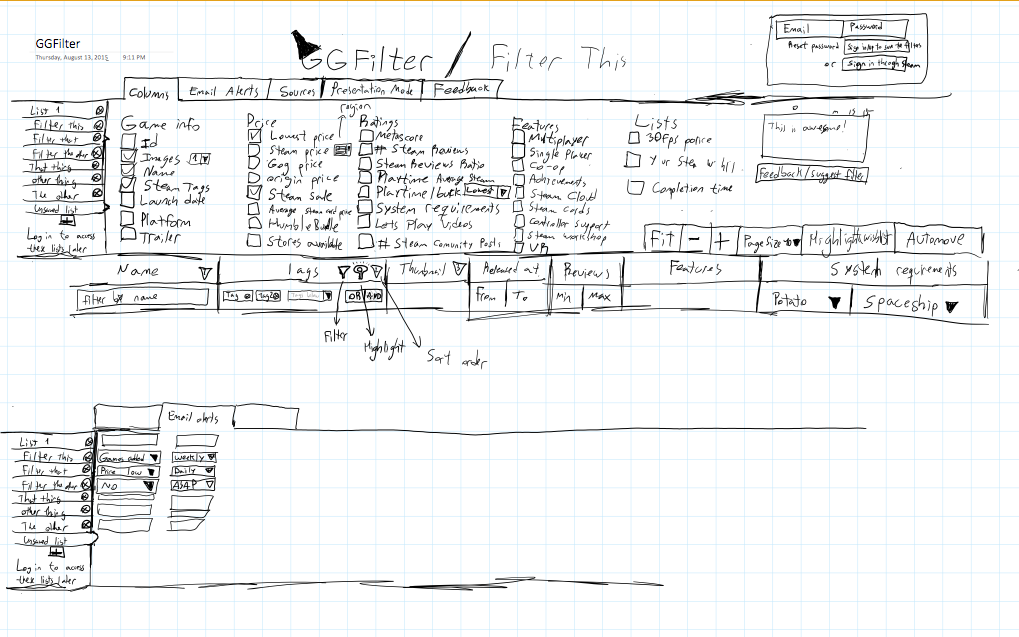 GGFilter
Thursday, August 13, 2015 9:11 PM
GGFilter / Filter This
Email Password
Reset password Sign in/up to save the filters
or Sign in through steam
Columns Email Alerts Sources Presentation Mode Feedback
region
List 1
Filter This
Filter that
Filter the other
That thing
other thing
Unsaved list
+
Log in to access
these lists later
Game info
Id
Images 1
Name
Steam Tags
Launch date
Platform
Trailer
Price
Lowest price
Steam price
Gog price
origin price
Steam sale
Average steam card price
Humble Bundle
Stores available
Ratings
Metascore
# Steam Reviews
Steam Reviews Ratio
Playtime Average Steam
Playtime/buck Lowest
System requirements
Lets Play Videos
# Steam Comunity Posts
Features
Multiplayer
Single Player
Co-op
Achievements
Steam Cloud
Steam Cards
Controller Support
Steam workshop
VR
Lists
30Fps police
Completion time
This is awesome!
Feedback/suggest filter
Fit - + Page Size Highlight wishlist Automove
Name Tags Thumbnail Released at Reviews Features System requirements
filter by name Tag Tag2 OR AND From To Min Max Potato Spaceship
Filter
Highlight
Sort order
Email alerts
List 1
Filter This Games added weekly
Filter that Price low Daily
Filter the other NO ASAP
That thing
other thing
The other
Unsaved list
+
Log in to access
these lists later